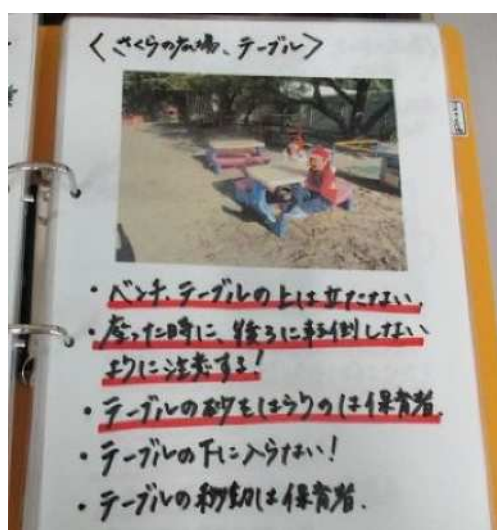 〈さくらの広場、テーブル〉
・ベンチ、テーブルの上は立たない。
・座った時に、後ろに転倒しない
ように注意する!
・テーブルの砂をはらうのは保育者。
・テーブルの下に入らない!
・テーブルの移動は保育者.